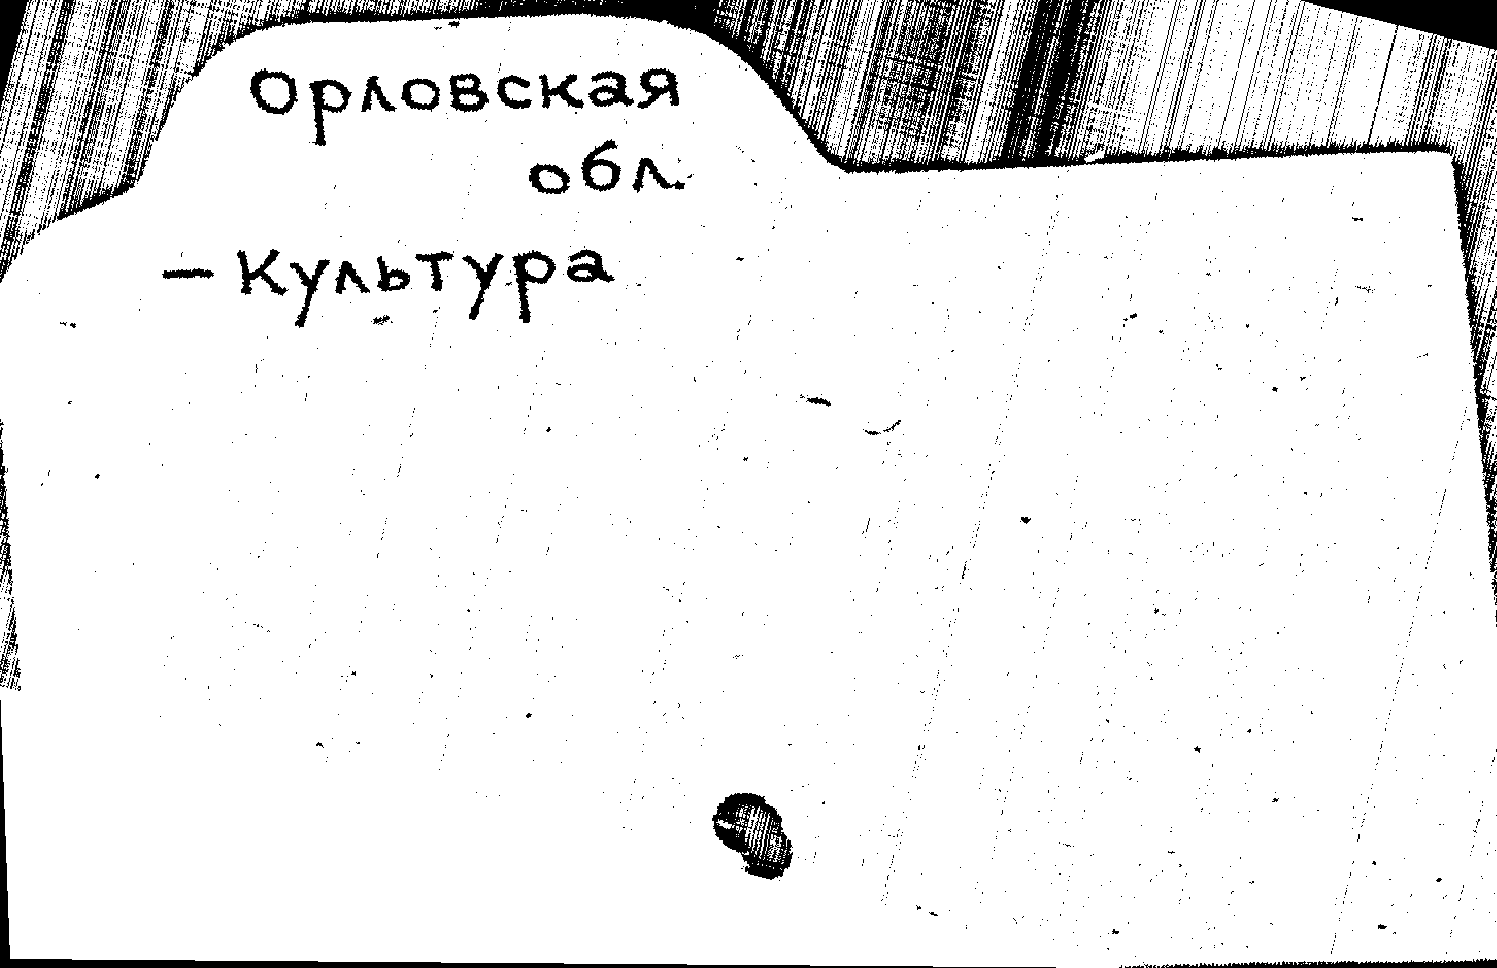 Орловская
обл.
- Культура